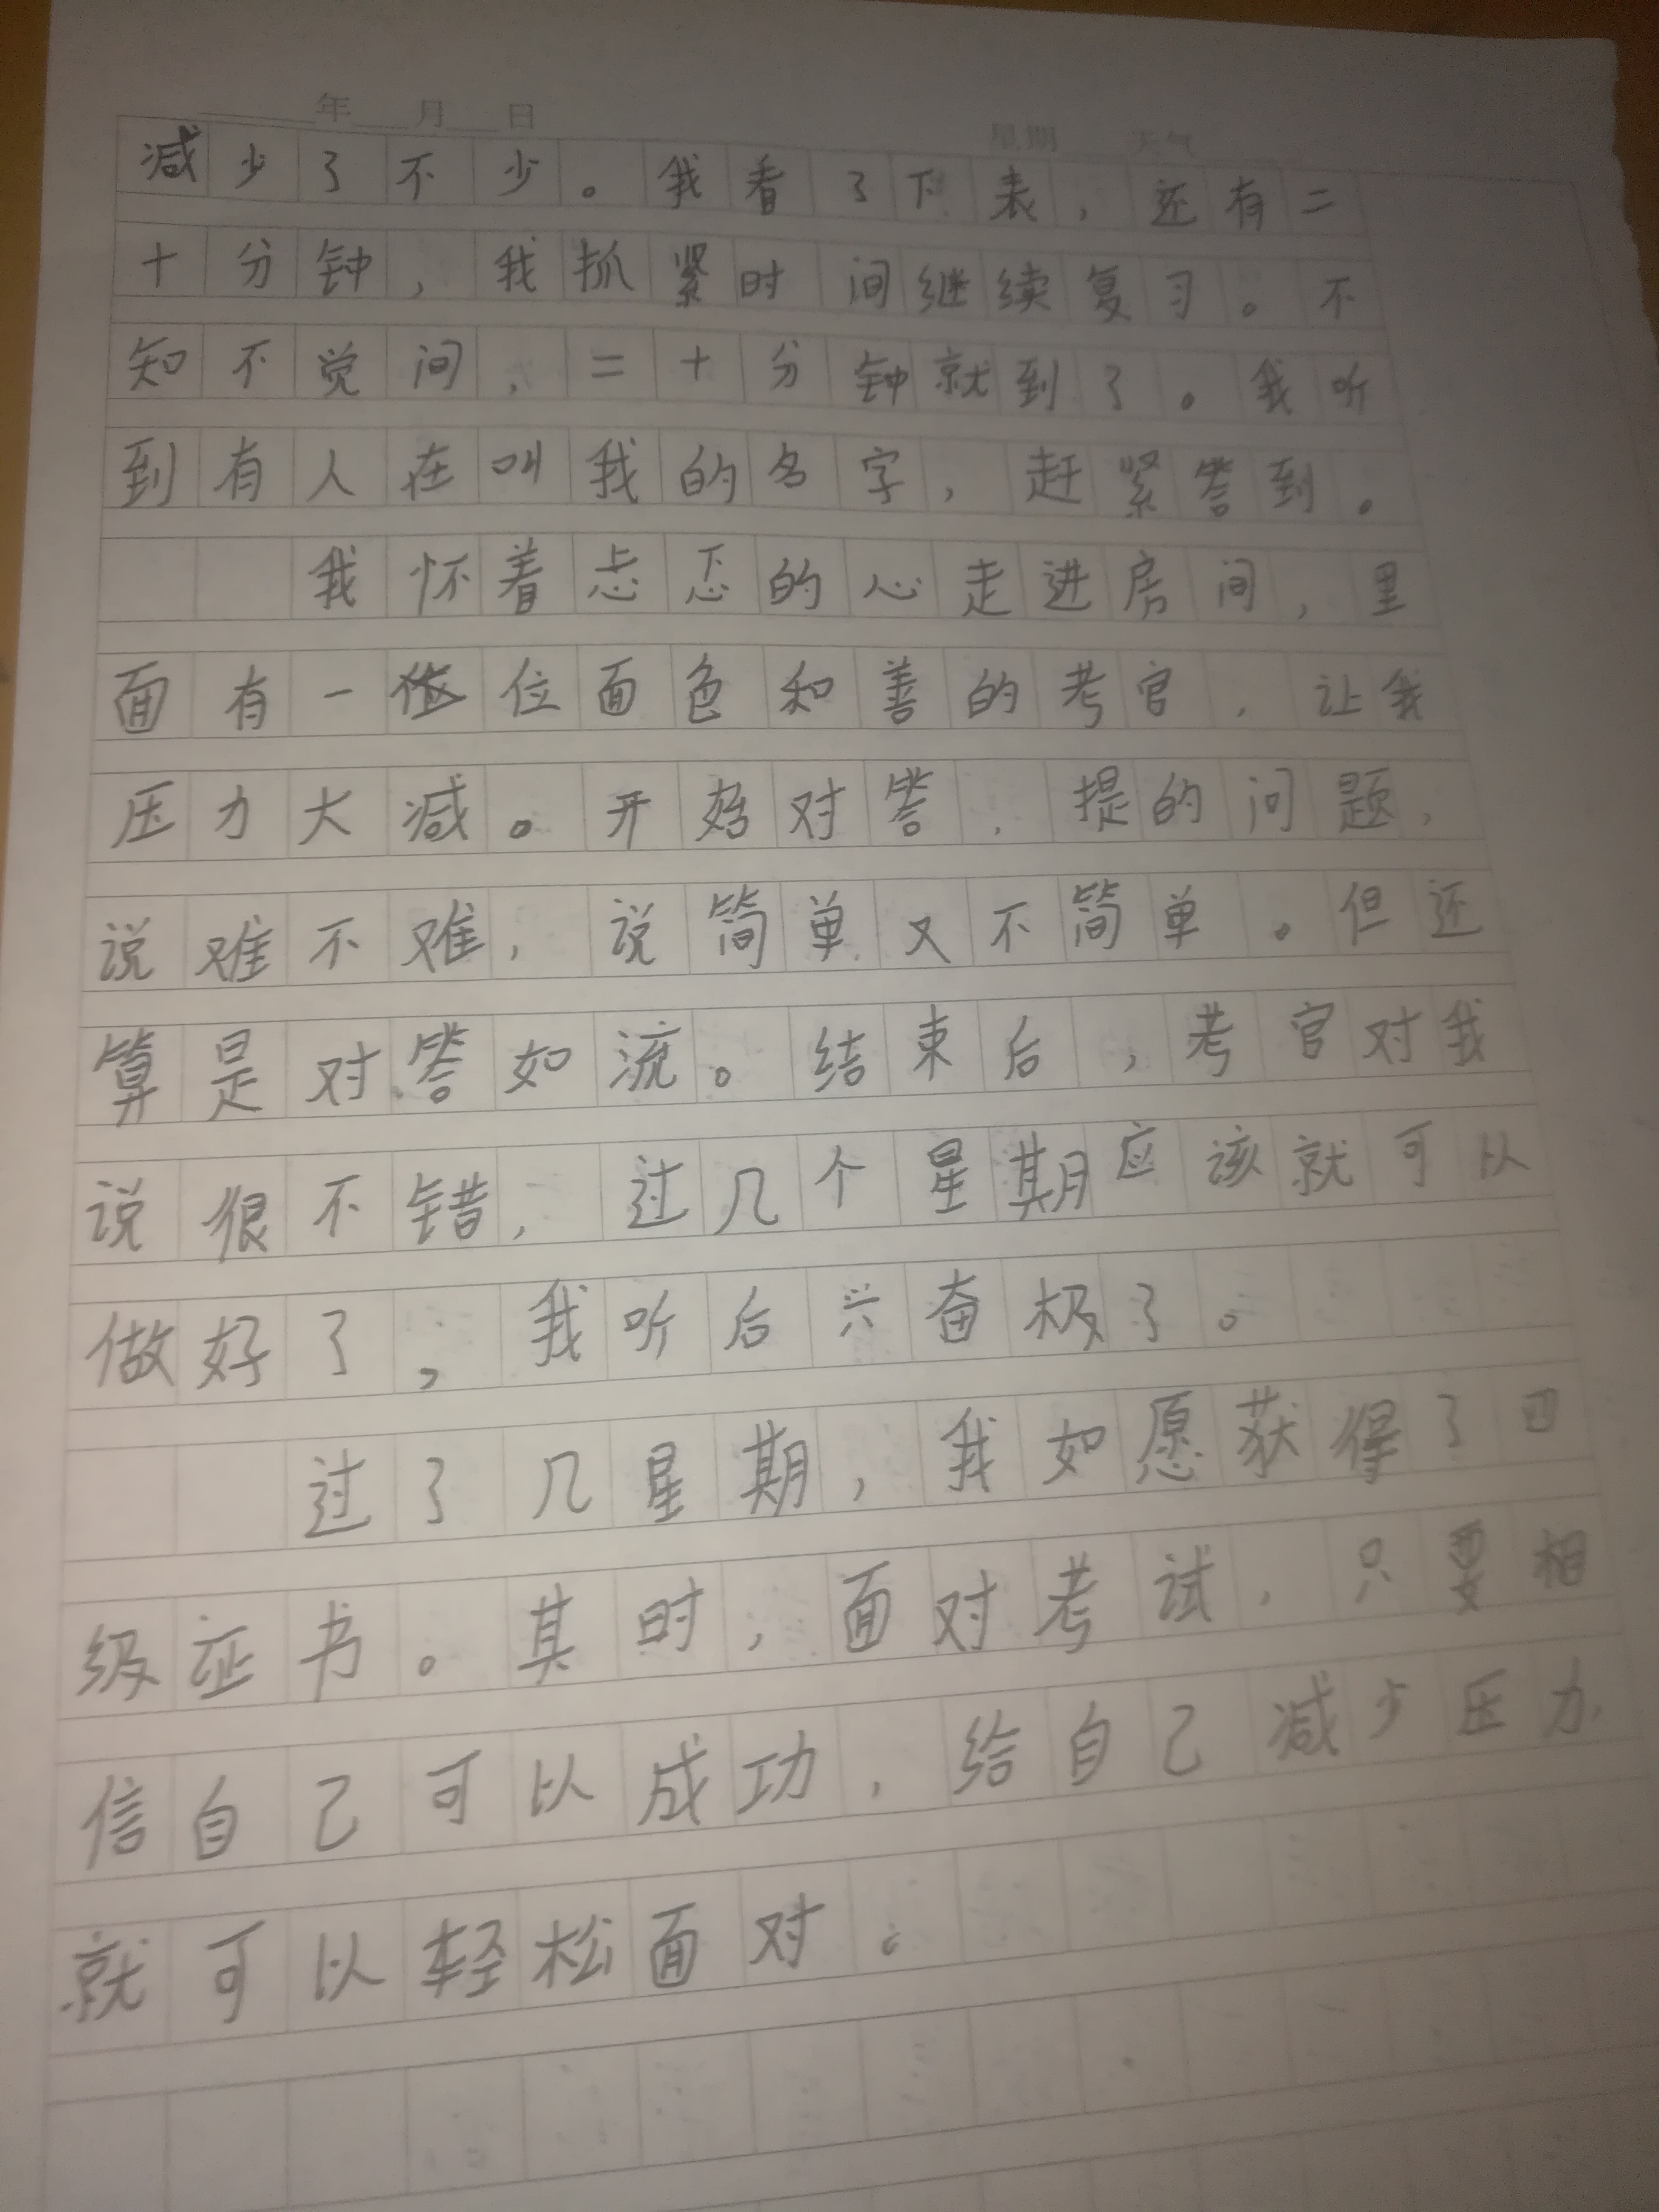 年 月 日 星期 天气
减少了不少。我看了下表，还有二
十分钟，我抓紧时间继续复习。不
知不觉间，二十分钟就到了。我听
到有人在叫我的名字，赶紧答到。
我怀着忐忑的心走进房间，里
面有一位面色和善的考官，让我
压力大减。开始对答，提的问题，
说难不难，说简单又不简单。但还
算是对答如流。结束后，考官对我
说很不错，过几个星期应该就可以
做好了，我听后兴奋极了。
过了几星期，我如愿获得了四
级证书。其时，面对考试，只要相
信自己可以成功，给自己减少压力，
就可以轻松面对。